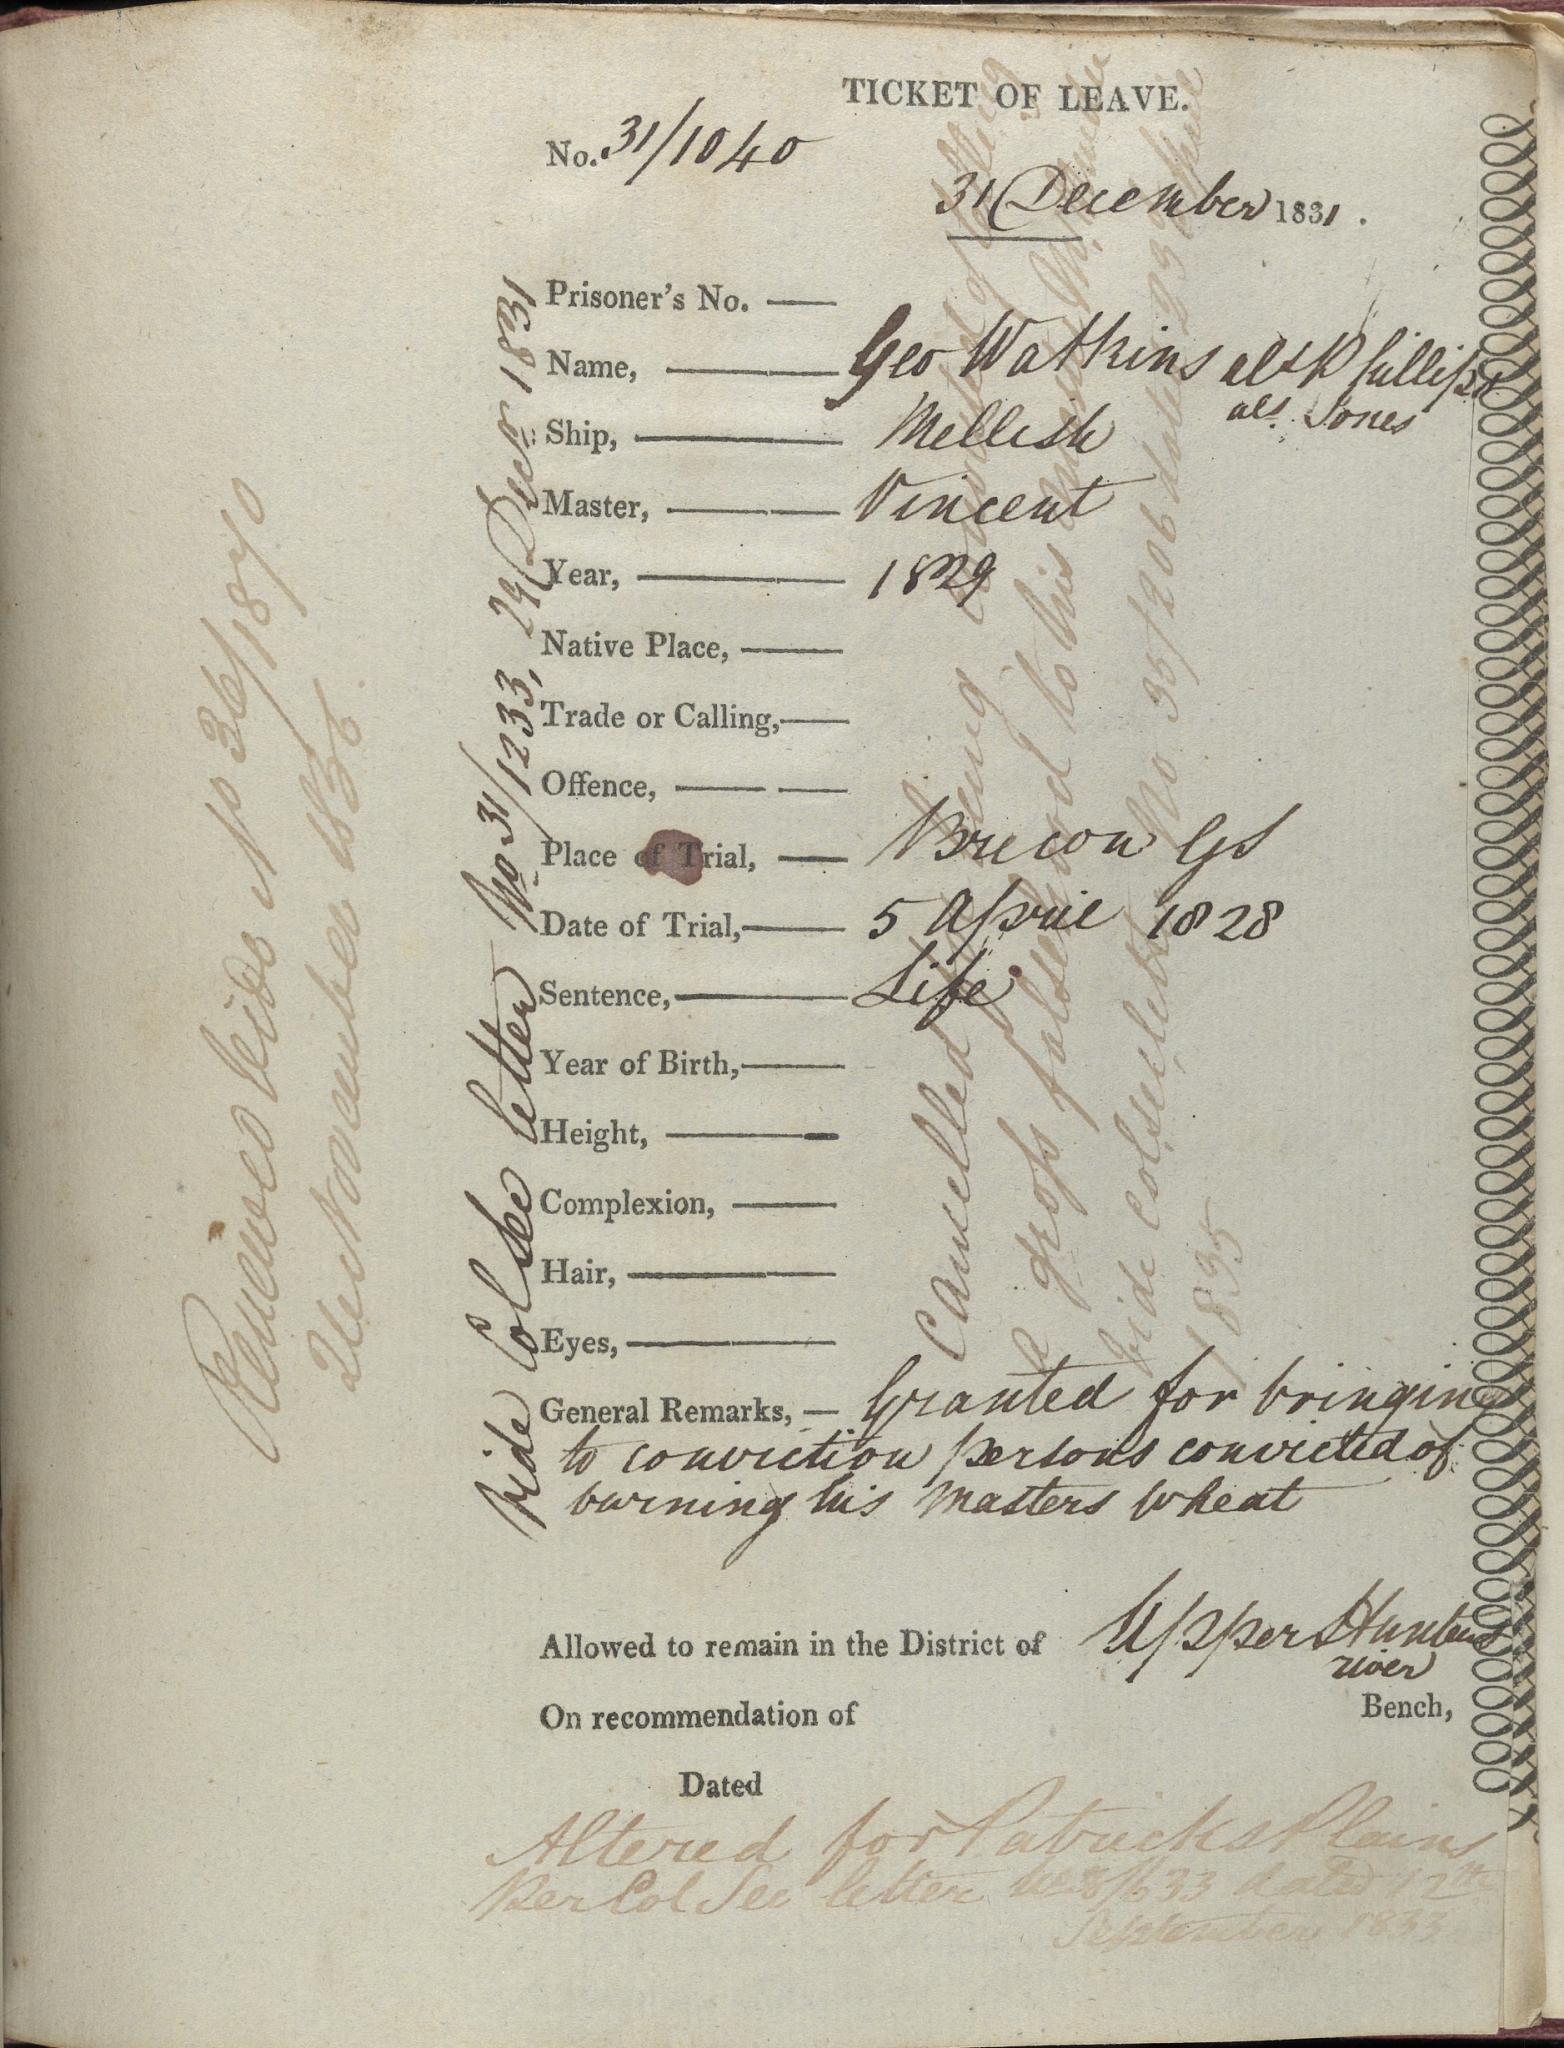 TICKET OF LEAVE.
No. 31/1040
31 December 1831.
Prisoner's No. —
Name, — Geo Watkins als Phillips
als. Jones
Ship, — Mellish
Master, — Vincent
Year, — 1829
Native Place, —
Trade or Calling, —
Offence, —
Place of Trial, — Brecon GS
Date of Trial, — 5 April 1828
Sentence, — Life
Year of Birth, —
Height, —
Complexion, —
Hair, —
Eyes, —
General Remarks, — Granted for bringing
to conviction persons convicted of
burning his Masters wheat
Allowed to remain in the District of Upper Hunters
river
On recommendation of Bench,
Dated
Altered for Patricks Plains
Per Col Sec letter dated 12th
September 1833
Vide Col Sec letter No 31/1233, 29 Decr 1831
Cancelled being
a gross falsehood to his
vide Col Sec letter No 35/206 dated 23
1835
Renewed vide No 36/1870
November 1836